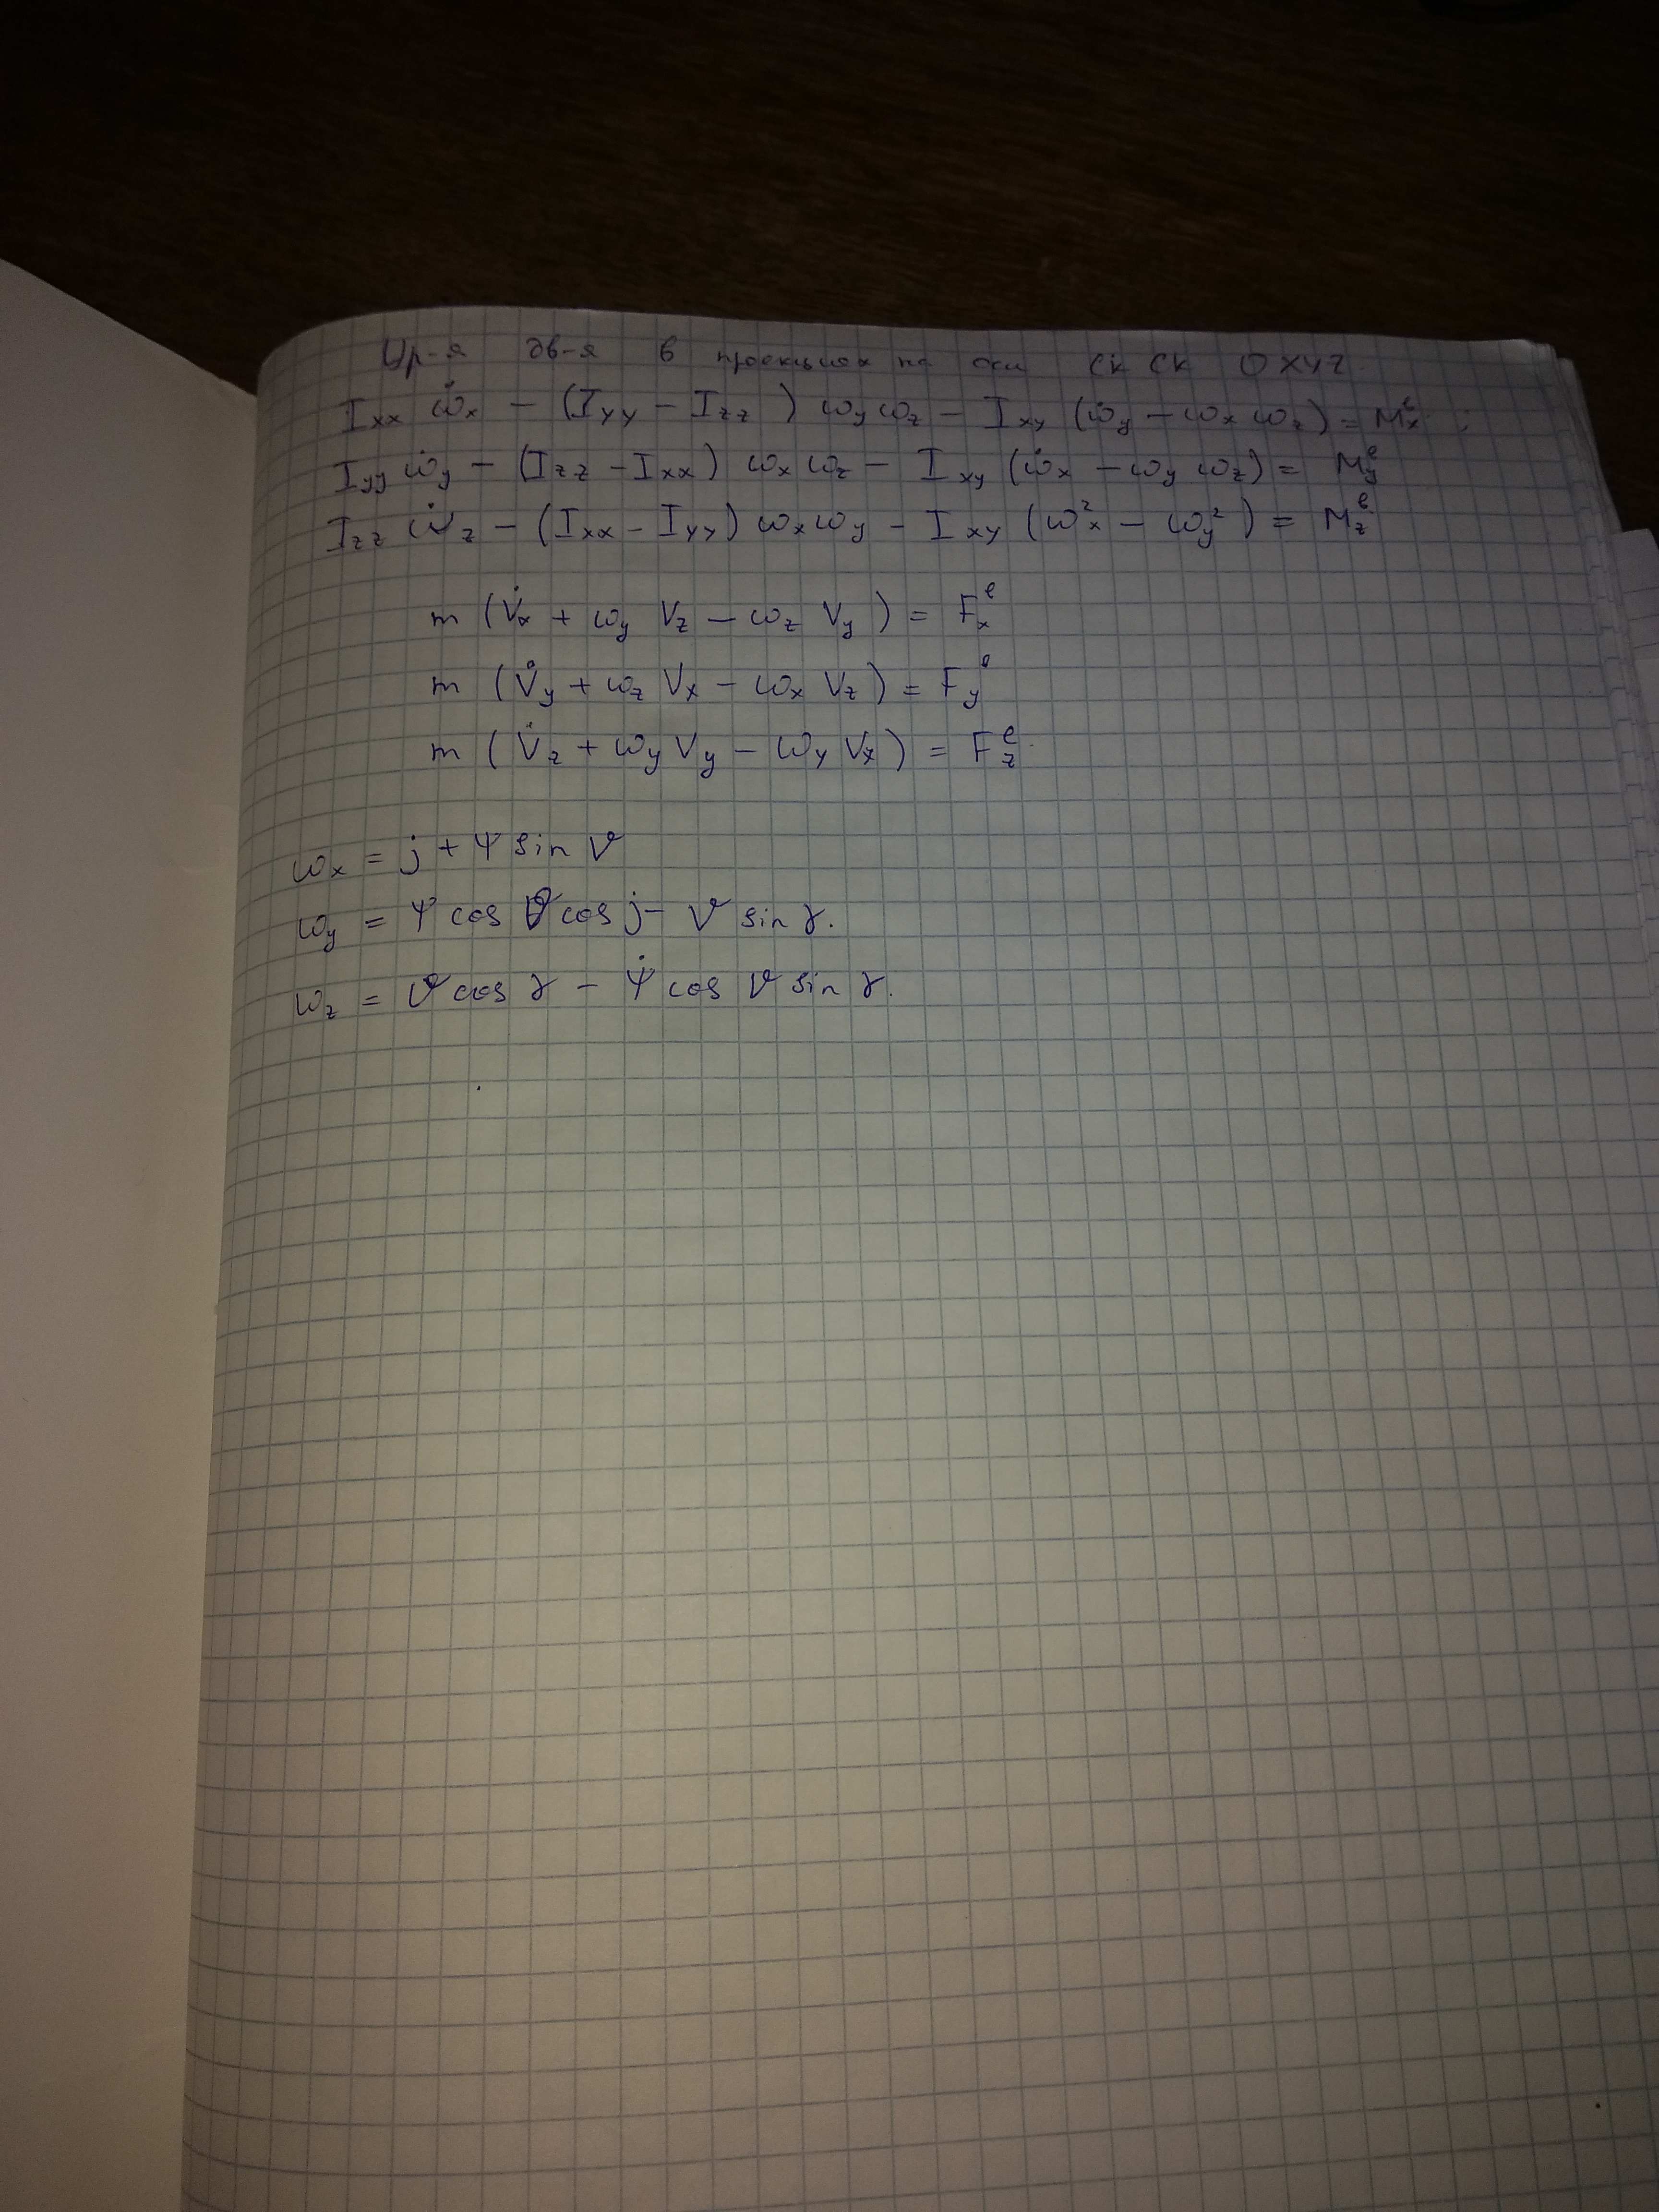 Ур-я дв-я в проекциях на оси СК СК OXYZ.
I_xx ω̇_x − (I_yy − I_zz) ω_y ω_z − I_xy (ω̇_y − ω_x ω_z) = M_x^e ;
I_yy ω̇_y − (I_zz − I_xx) ω_x ω_z − I_xy (ω̇_x − ω_y ω_z) = M_y^e
I_zz ω̇_z − (I_xx − I_yy) ω_x ω_y − I_xy (ω_x^2 − ω_y^2) = M_z^e.
m (V̇_x + ω_y V_z − ω_z V_y) = F_x^e
m (V̇_y + ω_z V_x − ω_x V_z) = F_y^e
m (V̇_z + ω_y V_y − ω_y V_x) = F_z^e.
ω_x = j + Ψ sin ϑ
ω_y = Ψ cos ϑ cos j − ϑ sin γ.
ω_z = ϑ cos γ − Ψ̇ cos ϑ sin γ.